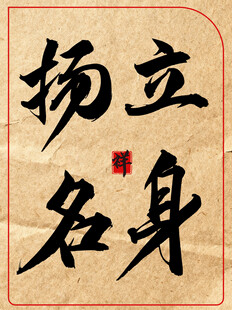 立身
扬名
祥